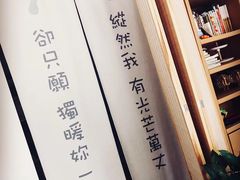 縱然我有光芒萬丈
卻只願獨暖妳一